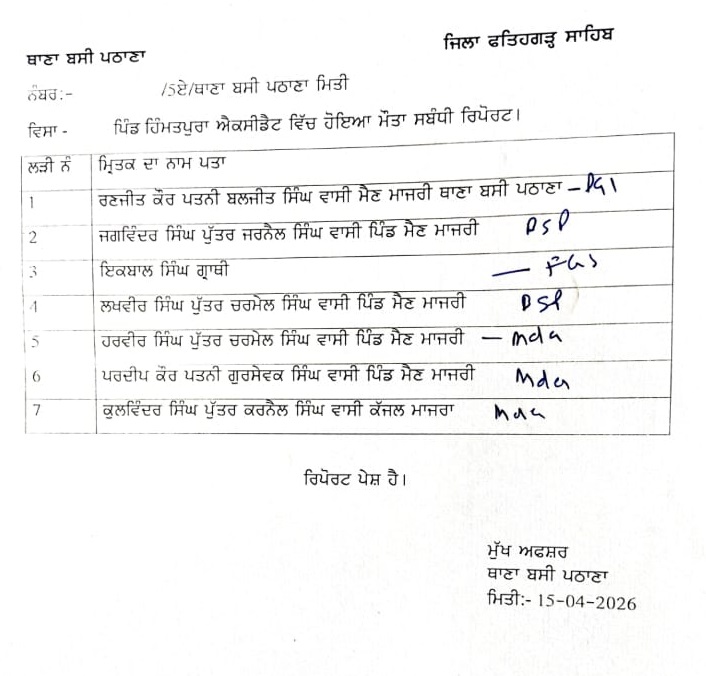 ਜਿਲਾ ਫਤਿਹਗੜ੍ਹ ਸਾਹਿਬ
ਥਾਣਾ ਬਸੀ ਪਠਾਣਾ
ਨੰਬਰ:- /5ਏ/ਥਾਣਾ ਬਸੀ ਪਠਾਣਾ ਮਿਤੀ
ਵਿਸਾ - ਪਿੰਡ ਹਿੰਮਤਪੁਰਾ ਐਕਸੀਡੈਟ ਵਿੱਚ ਹੋਇਆ ਮੌਤਾ ਸਬੰਧੀ ਰਿਪੋਰਟ।
ਲੜੀ ਨੰ ਮ੍ਰਿਤਕ ਦਾ ਨਾਮ ਪਤਾ
1 ਰਣਜੀਤ ਕੌਰ ਪਤਨੀ ਬਲਜੀਤ ਸਿੰਘ ਵਾਸੀ ਮੈਣ ਮਾਜਰੀ ਥਾਣਾ ਬਸੀ ਪਠਾਣਾ – PGI
2 ਜਗਵਿੰਦਰ ਸਿੰਘ ਪੁੱਤਰ ਜਰਨੈਲ ਸਿੰਘ ਵਾਸੀ ਪਿੰਡ ਮੈਣ ਮਾਜਰੀ
3 ਇਕਬਾਲ ਸਿੰਘ ਗ੍ਰਾਥੀ — FGS
4 ਲਖਵੀਰ ਸਿੰਘ ਪੁੱਤਰ ਚਰਮੇਲ ਸਿੰਘ ਵਾਸੀ ਪਿੰਡ ਮੈਣ ਮਾਜਰੀ
5 ਹਰਵੀਰ ਸਿੰਘ ਪੁੱਤਰ ਚਰਮੇਲ ਸਿੰਘ ਵਾਸੀ ਪਿੰਡ ਮੈਣ ਮਾਜਰੀ —
6 ਪਰਦੀਪ ਕੌਰ ਪਤਨੀ ਗੁਰਸੇਵਕ ਸਿੰਘ ਵਾਸੀ ਪਿੰਡ ਮੈਣ ਮਾਜਰੀ
7 ਕੁਲਵਿੰਦਰ ਸਿੰਘ ਪੁੱਤਰ ਕਰਨੈਲ ਸਿੰਘ ਵਾਸੀ ਕੱਜਲ ਮਾਜਰਾ
ਰਿਪੋਰਟ ਪੇਸ਼ ਹੈ।
ਮੁੱਖ ਅਫਸ਼ਰ
ਥਾਣਾ ਬਸੀ ਪਠਾਣਾ
ਮਿਤੀ:- 15-04-2026